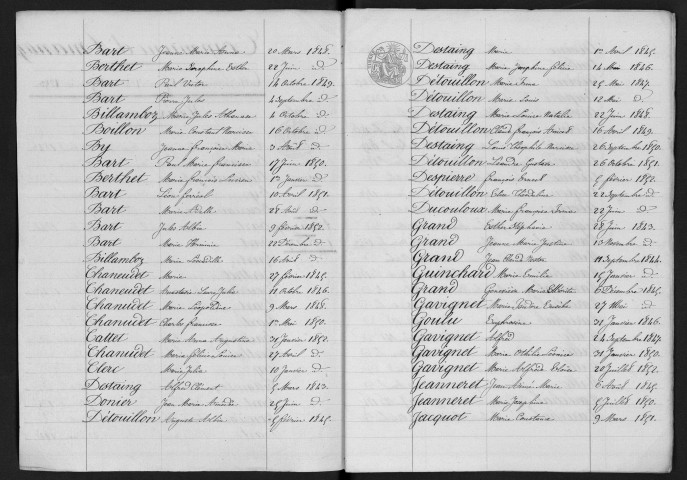 Bart Jeanne Marie Anna 20 Mars 1848.
Berthet Marie Josephine Esther 22 Juin d°
Bart Paul Victor 14 Octobre 1849.
Bart Pierre Jules 4 Septembre d°
Billamboz Marie Jules Athanase 4 Octobre d°
Boillon Marie Constant Narcisse 16 Octobre d°
By Jeanne Françoise Marie 3 Août d°
Bart Paul Marie Francisse 17 Juin 1850.
Berthet Marie François 1er Janvier d°
Bart Léon 10 Avril 1851.
Bart Marie 28 Août d°
Bart Jules 9 février 1852.
Bart Marie Herminie 22 Décembre d°
Billamboz Marie 16 Août d°
Chaneudet Marie 27 février 1845.
Chaneudet Louis Jules 11 Octobre 1846.
Chaneudet Marie Léopoldine 9 Mars 1848.
Chaneudet Charles 1er Mai 1850.
Cattet Marie Anna Augustine 31 Janvier 1850.
Chaneudet Marie 27 Avril d°
Clerc Marie Julie 10 Janvier d°
Dostaing Alfred Clément 5 Mars 1843.
Donier Jean Marie Amédée 25 Juin d°
Détouillon Auguste 5 février 1845.
Destaing Marie 1er Avril 1845.
Destaing Marie Josephine 14 Mai 1846.
Détouillon Marie Irma 25 Mai 1847.
Détouillon Marie Louis 12 Mai d°
Destaing Marie Louise Natalie 22 Juin 1848.
Détouillon Claude François 16 Avril 1849.
Destaing Louis Théophile 26 Septembre 1850.
Détouillon Léandre Gustave 26 Octobre 1851.
Despierre François 5 février 1852.
Détouillon 22 Septembre d°
Ducouloux Marie Françoise 22 Juin d°
Grand Esther Stéphanie 28 Juin 1843.
Grand Jeanne Marie Justine 13 Novembre d°
Grand Jean Claude Victor 11 Septembre 1844.
Guinchard Marie Emilie 15 Janvier d°
Grand Geneviève Marie 6 Décembre 1845.
Gavignet Marie 27 Mai d°
Goulu Euphrasine 31 Janvier 1846.
Gavignet Alfred 24 Septembre 1847.
Gavignet Marie Othilie 31 Janvier 1850.
Gavignet Marie Alfred 20 Juillet 1852.
Jeanneret Jean Aimé Marie 6 Août 1845.
Jeanneret Marie Josephine 5 Juillet 1850.
Jacquot Marie Constance 9 Mars 1851.